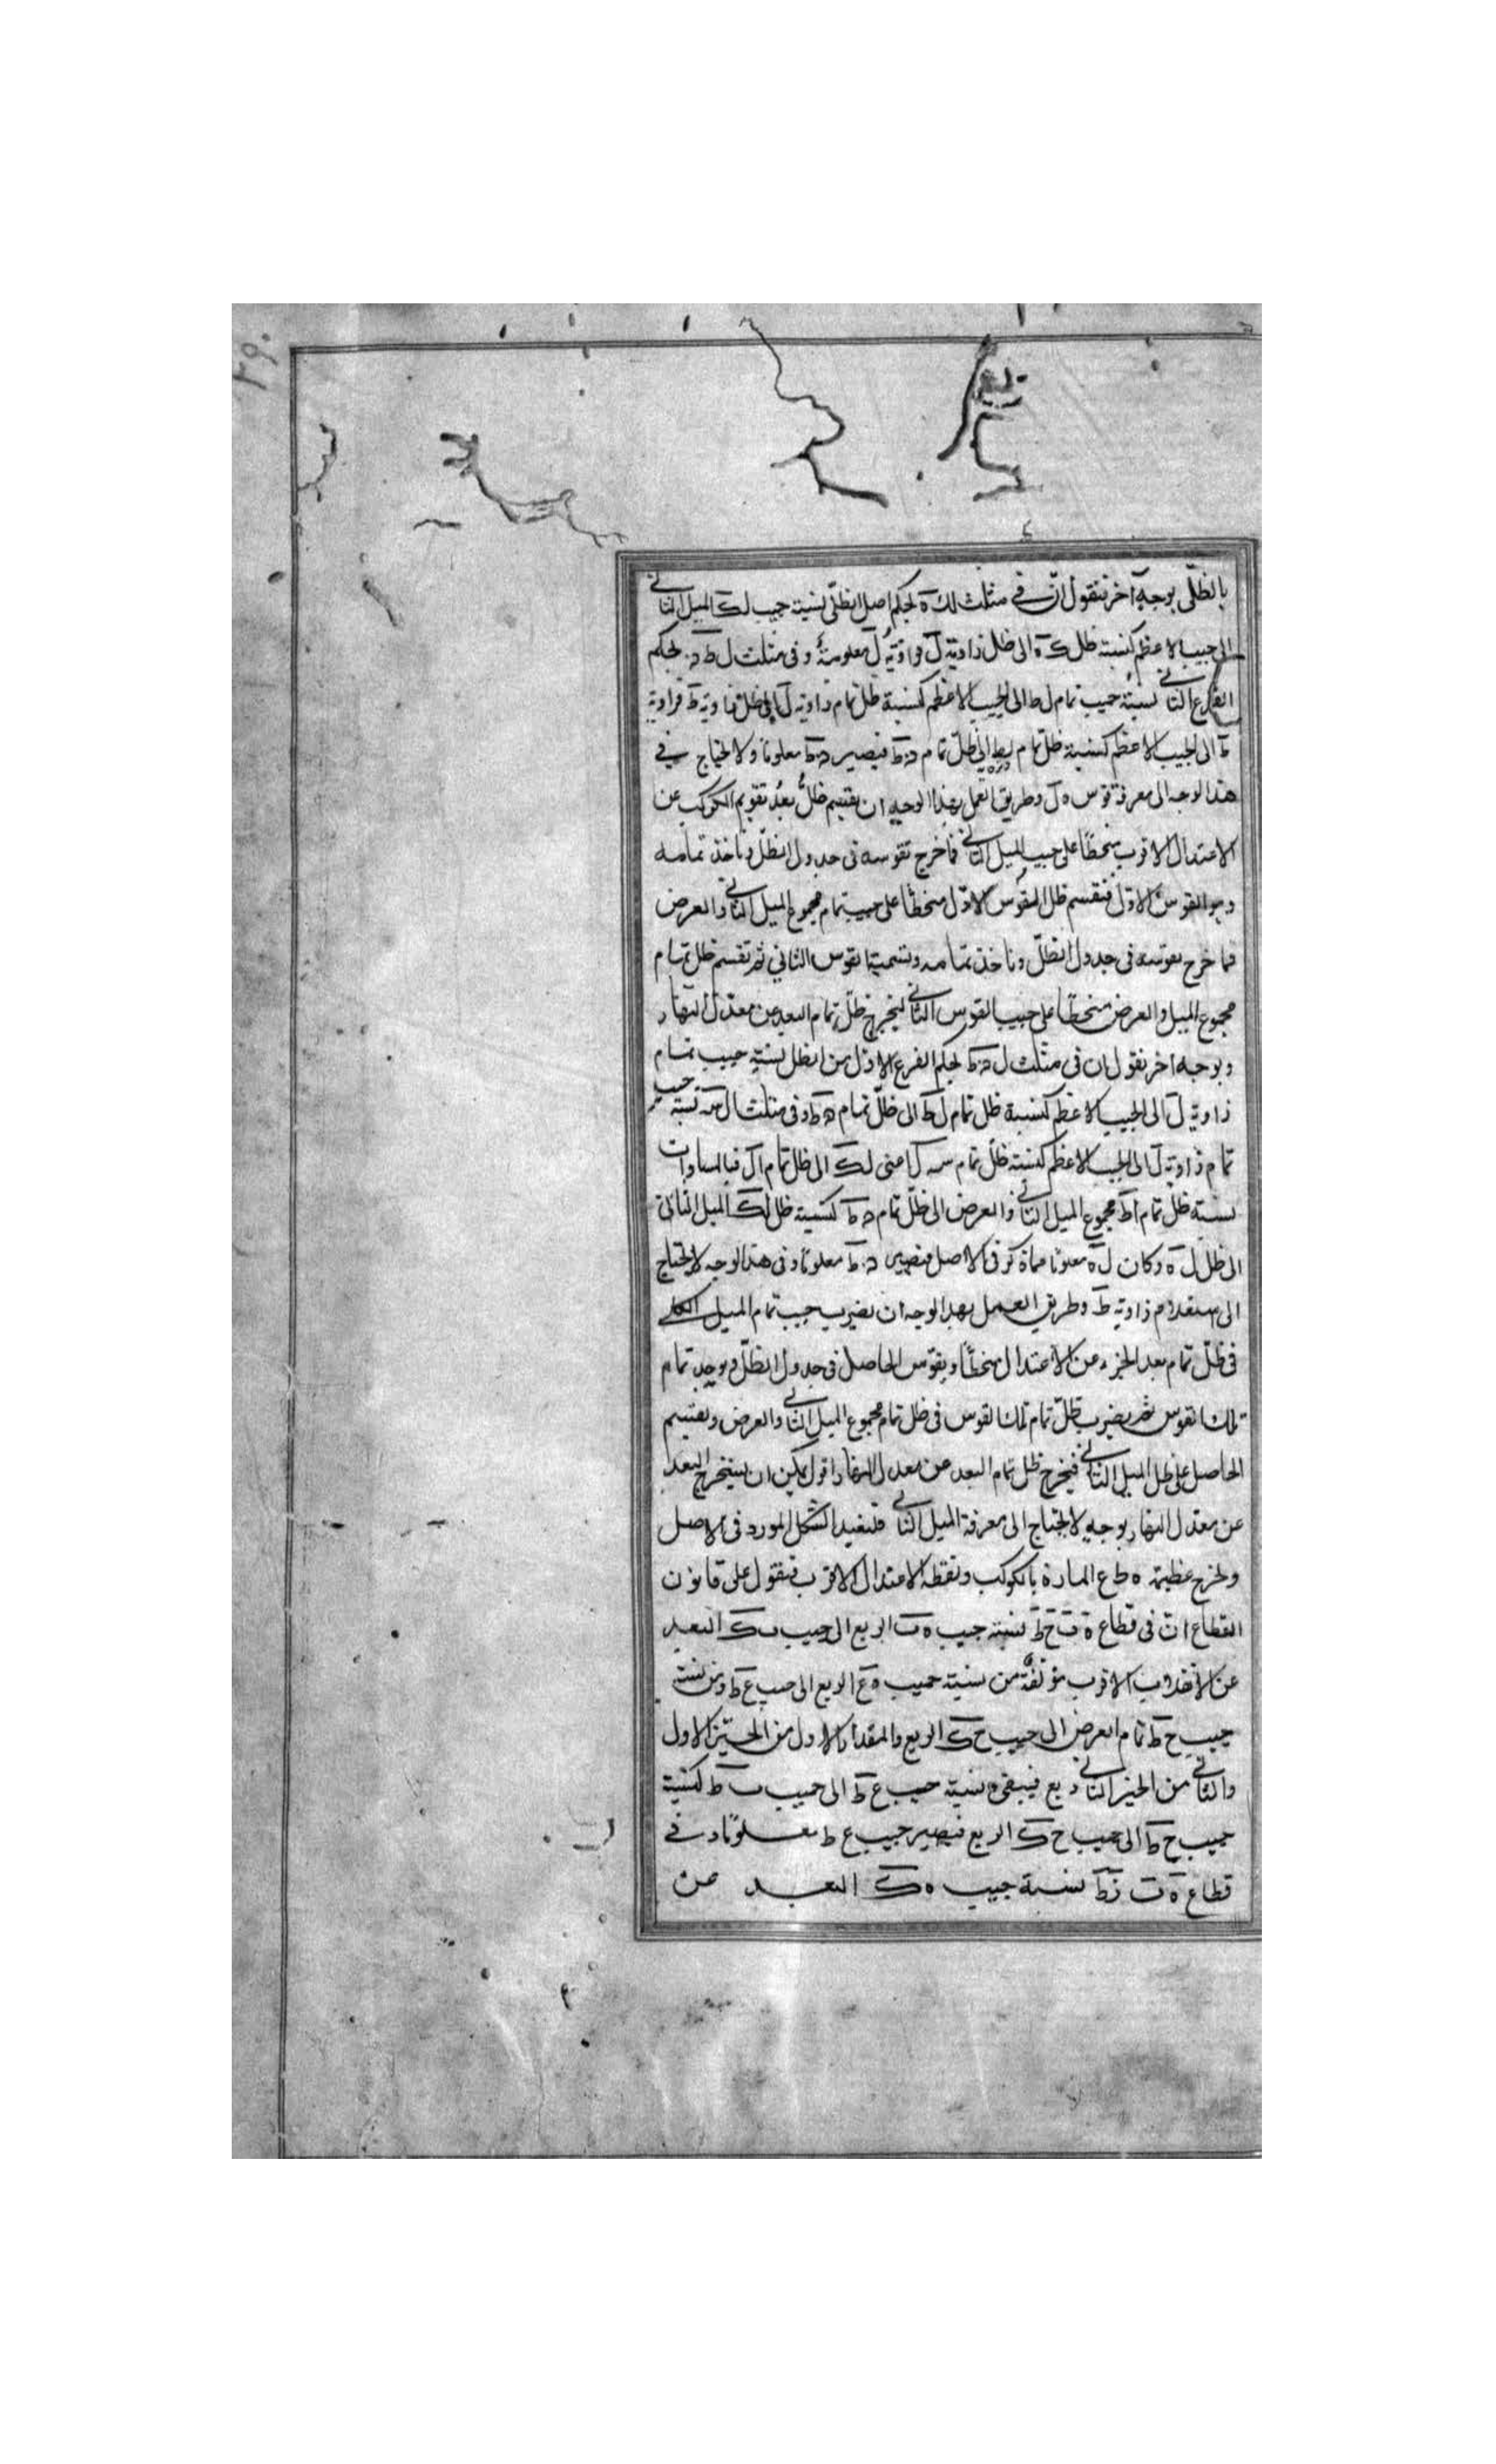 بالظلى بوجه آخر فنقول ان فى مثلث ل ك ه بحكم اصل الظلى نسبة جيب ل ك الميل الثانى
الى جيب الاعظم كنسبة ظل ك ه الى ظل زاوية ل فزاوية ل معلومة وفى مثلث ل ط د بحكم
الفرع الثانى نسبة جيب تمام ل ط الى الجيب الاعظم كنسبة ظل تمام زاوية ل الى ظل زاوية ط فزاوية
ط الى الجيب الاعظم كنسبة ظل تمام الى ظل تمام د ط فيصير د ط معلوما ولا نحتاج فى
هذا الوجه الى معرفة قوس ه ل وطريق العمل بهذا الوجه ان نقسم ظل بعد تقويم الكوكب عن
الاعتدال الاقرب منحطا على جيب الميل الثانى فما خرج نقوسه فى جدول الظل وناخذ تمامه
وهو القوس الاول فنقسم ظل القوس الاول منحطا على جيب تمام مجموع الميل الثانى والعرض
فما خرج نقوسه فى جدول الظل وناخذ تمامه ونسميه القوس الثانى ثم نقسم ظل تمام
مجموع الميل والعرض منحطا على جيب القوس الثانى ليخرج ظل تمام البعد عن معدل النهار
وبوجه اخر نقول ان فى مثلث ل د ط بحكم الفرع الاول من الظل نسبة جيب تمام
زاوية ل الى الجيب الاعظم كنسبة ظل تمام ل ط الى ظل تمام د ط وفى مثلث ال س نسبة جيب
تمام زاوية ل الى الجيب الاعظم كنسبة ظل تمام س ل اعنى ل ك الى ظل تمام ال فبالمساوات
نسبة ظل تمام ا ط مجموع الميل الثانى والعرض الى ظل تمام د ط كنسبة ظل ل ك الميل الثانى
الى ظل ل ه وكان ل ه معلوما مما ذكر فى الاصل فيصير د ط معلوما وفى هذا الوجه لا نحتاج
الى استعلام زاوية ط وطريق العمل بهذا الوجه ان نضرب جيب تمام الميل الكلى
فى ظل تمام بعد الجزء عن الاعتدال منحطا ونقوس الحاصل فى جدول الظل ويوجد تمام
تلك القوس ثم نضرب ظل تمام تلك القوس فى ظل تمام مجموع الميل الثانى والعرض ونقسم
الحاصل على ظل الميل الثانى فيخرج ظل تمام البعد عن معدل النهار واقول يمكن ان يستخرج البعد
عن معدل النهار بوجه لا يحتاج الى معرفة الميل الثانى فلنعيد الشكل المورد فى الاصل
ونخرج عظيمة ه ط ع المارة بالكوكب ونقطة الاعتدال الاقرب فنقول على قانون
القطاع ان فى قطاع ه ف ح ط نسبة جيب ه ف الربع الى جيب ف ك البعد
عن الانقلاب الاقرب مؤلفة من نسبة جيب ه ع الربع الى جيب ع ط ومن نسبة
جيب ح ط تمام العرض الى جيب ح ك الربع والمقدار الاول من الحيز الاول
والثانى من الحيز الثانى ربع فيبقى نسبة جيب ع ط الى جيب ف ط كنسبة
جيب ح ط الى جيب ح ك الربع فيصير جيب ع ط معلوما وفى
قطاع ه ف ز ط نسبة جيب ه ك البعد عن